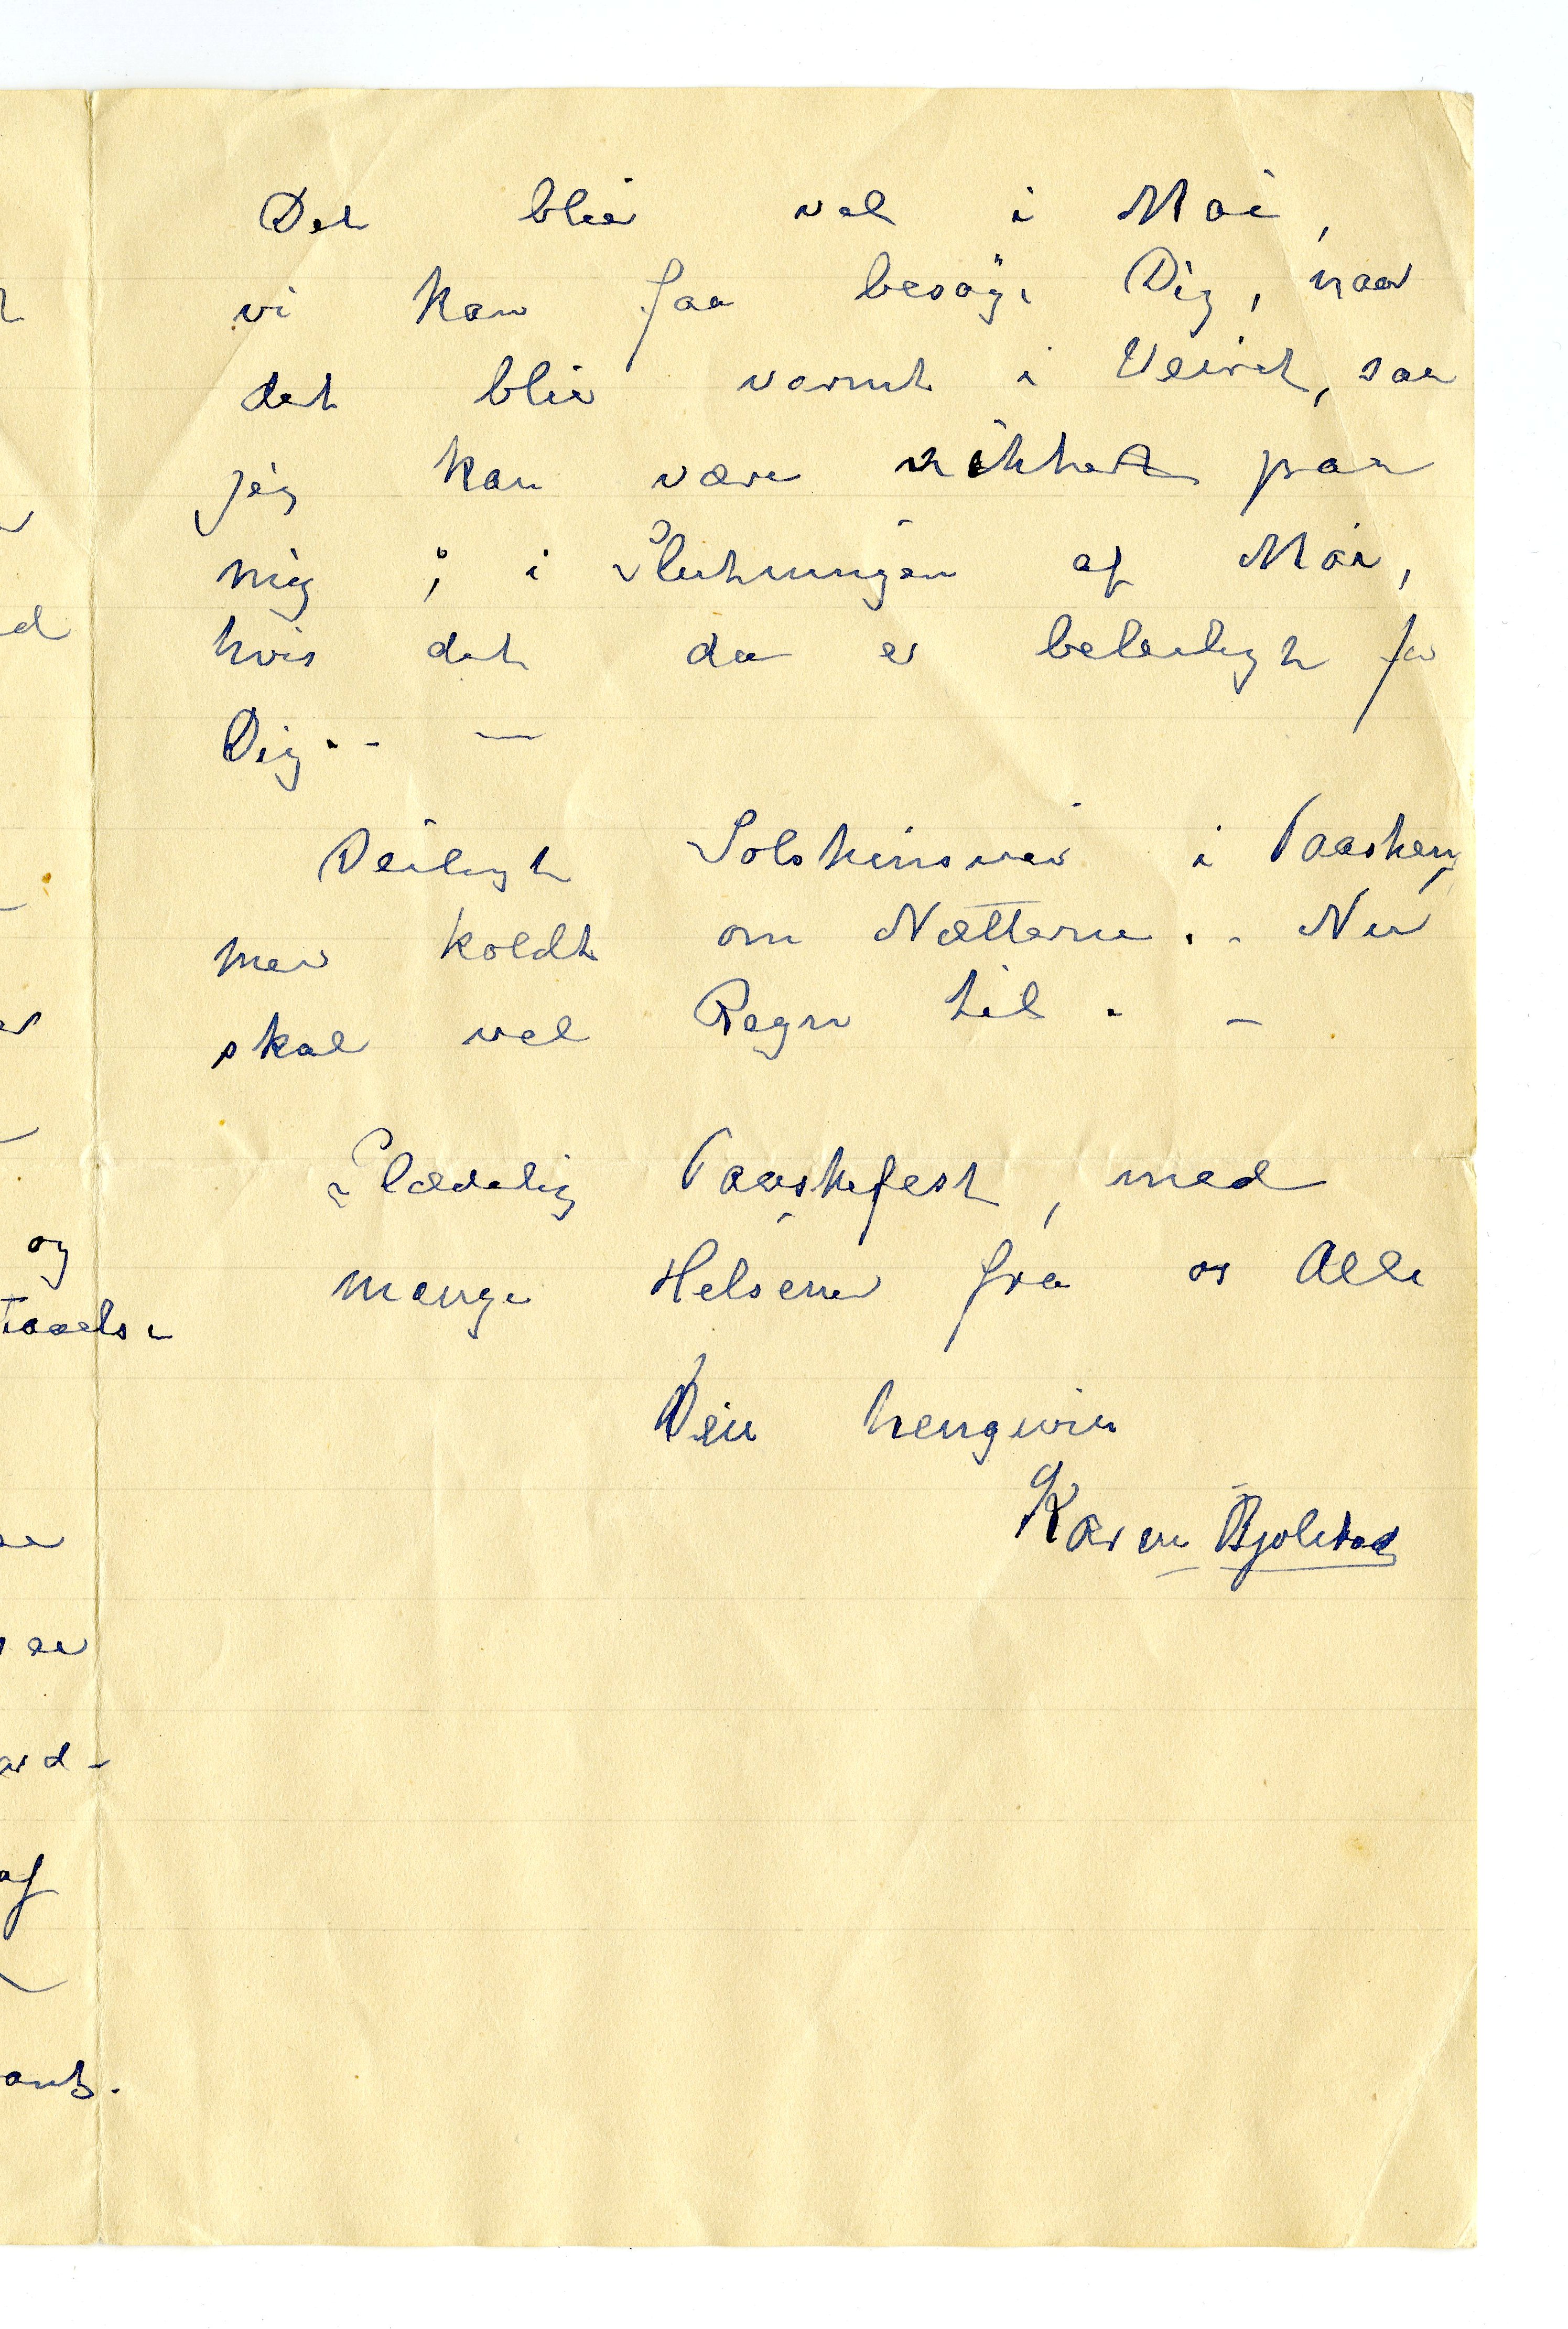 Det blir vel i Mai,
vi kan faa besøge Dig, naar
det blir varmt i Veiret, saa
jeg kan være sikker paa
mig; i Slutningen af Mai,
hvis det da er beleiligt for
Dig.- —
Deiligt Solskinsveir i Paasken,
men koldt om Nætterne.- Nu
skal vel Regn til. -
Glædelig Paaskefest, med
mange Helsener fra os Alle
Din hengivne
Karen Bjølstad
og
Taaels
af